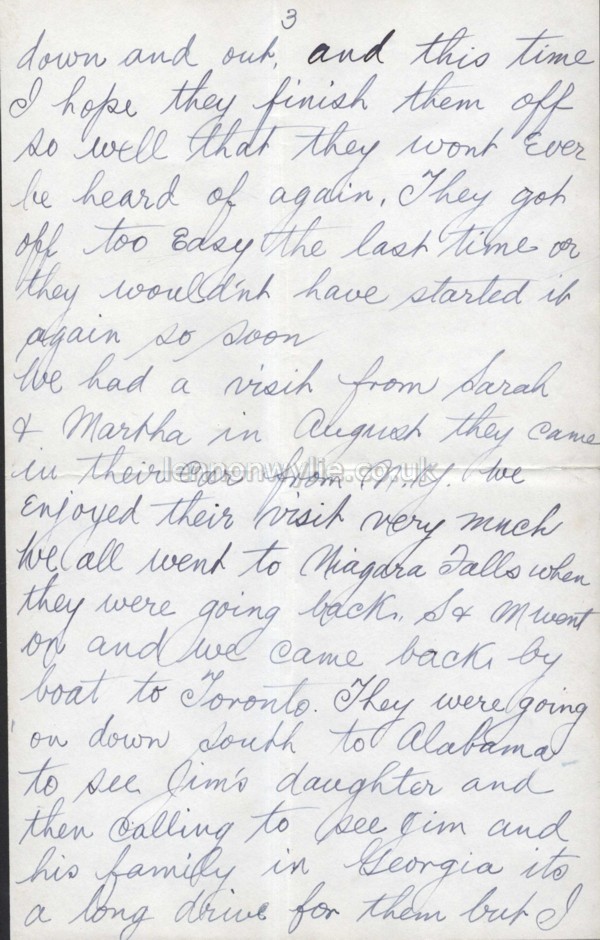 3
down and out, and this time
I hope they finish them off
so well that they wont Ever
be heard of again. They got
off too Easy the last time or
they would'nt have started it
again so soon
We had a visit from Sarah
& Martha in August they came
in their car from N.Y. We
Enjoyed their visit very much
We all went to Niagara Falls when
they were going back. S & M went
on and we came back by
boat to Toronto. They were going
on down south to Alabama
to see Jim's daughter and
then calling to see Jim and
his family in Georgia its
a long drive for them but I
lennonwylie.co.uk